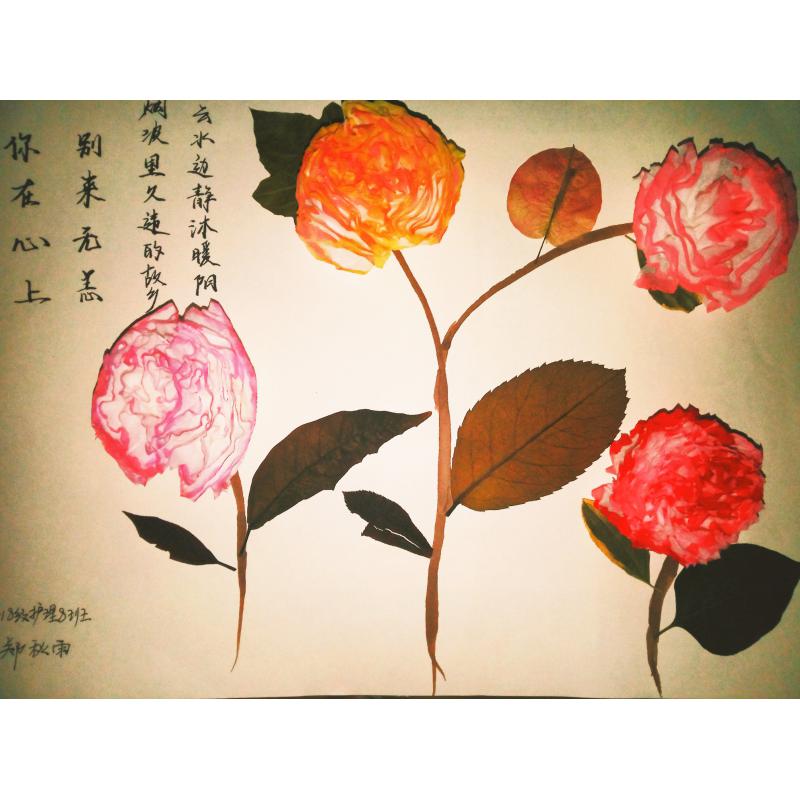 云水边静沐暖阳
烟波里久违的故乡
别来无恙
你在心上
18级护理8班
郑秋雨